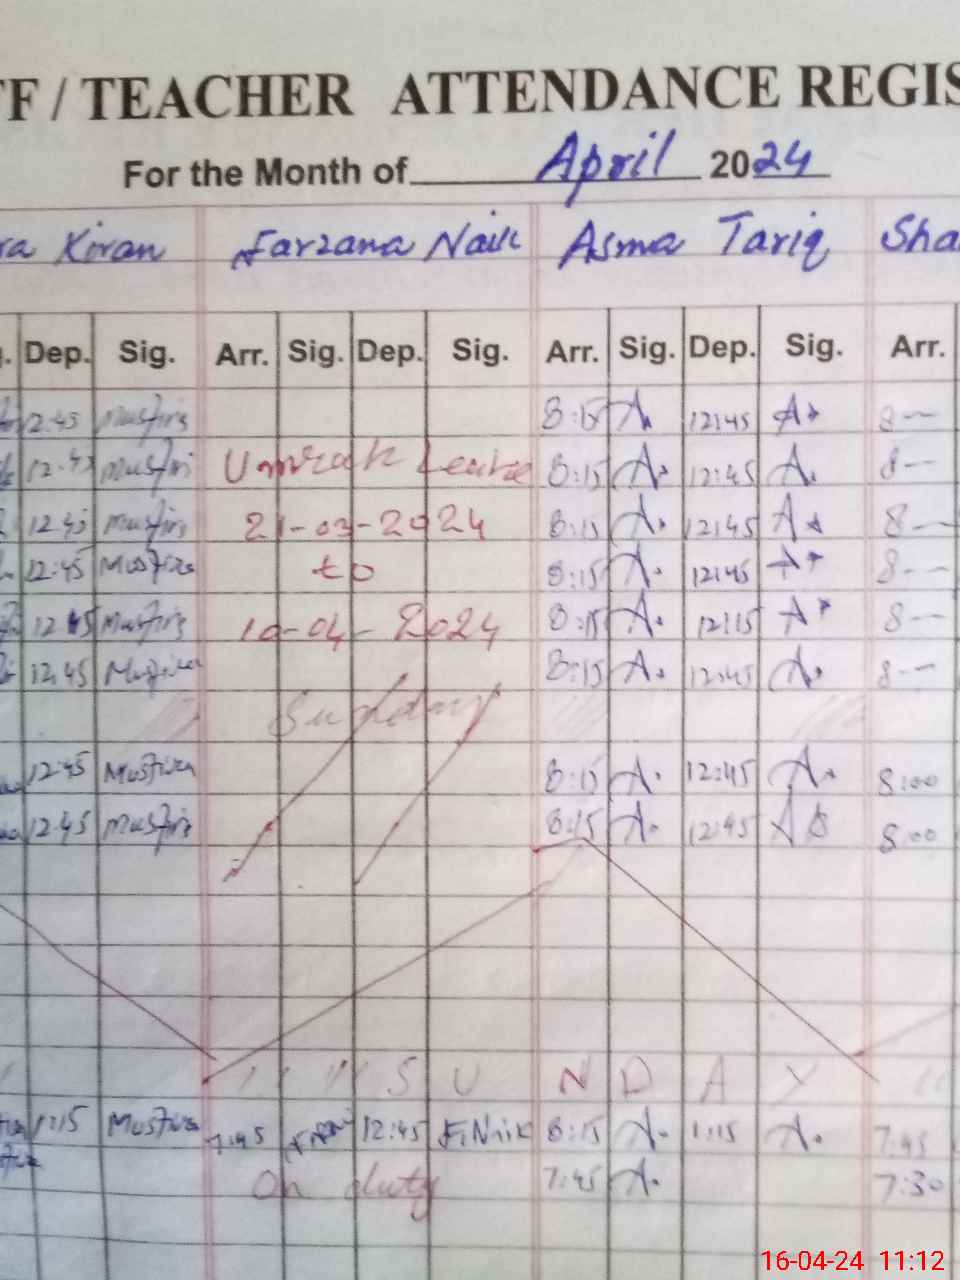 F / TEACHER ATTENDANCE REGIS
For the Month of April 2024
ra Kiran Farzana Naik Asma Tariq Sha
Dep. Sig. Arr. Sig. Dep. Sig. Arr. Sig. Dep. Sig. Arr.
12:45 8:15 A. 12:45 A. 8—
12:45 Umrah Leave 8:15 A. 12:45 A. 8—
12:45 21-03-2024 8:15 A. 12:45 A. 8—
12:45 to 8:15 A. 12:45 A. 8—
12:45 10-04-2024 8:15 A. 12:15 A. 8—
12:45 8:15 A. 12:45 A. 8—
Sunday
12:45 8:15 A. 12:45 A. 8:00
12:45 8:15 A. 12:45 8:00
S U N D A Y
1:15 7:45 12:45 F.Naik 8:15 A. 1:15 A. 7:45
On duty 7:45 A. 7:30
16-04-24 11:12